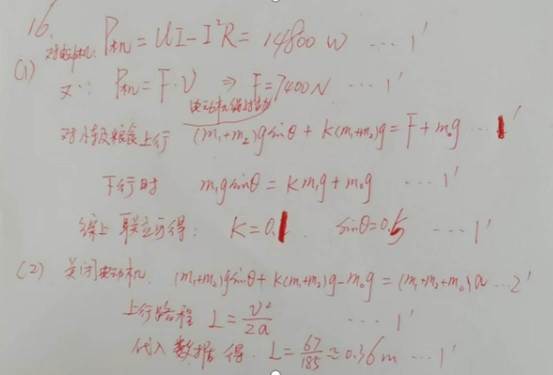 16.
(1) 对电动机: P机 = UI - I²R = 14800 W ... 1'
又∵ P机 = F·V ⇒ F = 7400N ... 1'
对车及粮食上行 (m₁+m₂)g sinθ + k(m₁+m₂)g = F + m₀g ... 1'
下行时 m₁g sinθ = km₁g + m₀g ... 1'
综上 联立可得: K = 0.1 sinθ = 0.5 ... 1'
(2) 关闭电动机. (m₁+m₂)g sinθ + k(m₁+m₂)g - m₀g = (m₁+m₂+m₀)a ... 2'
上行路程 L = v²/2a ... 1'
代入数据得. L = 67/185 ≈ 0.36 m ... 1'